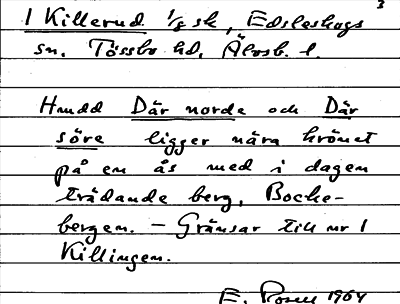 3
1 Killerud 1/8 sk, Edsleskogs
sn. Tössbo hd, Älvsb. l.
Hmdd Där norde och Där
söre ligger nära krönet
på en ås med i dagen
trädande berg, Bocke-
bergen. - Gränsar till nr 1
Killingen.
E. Rosen 1964